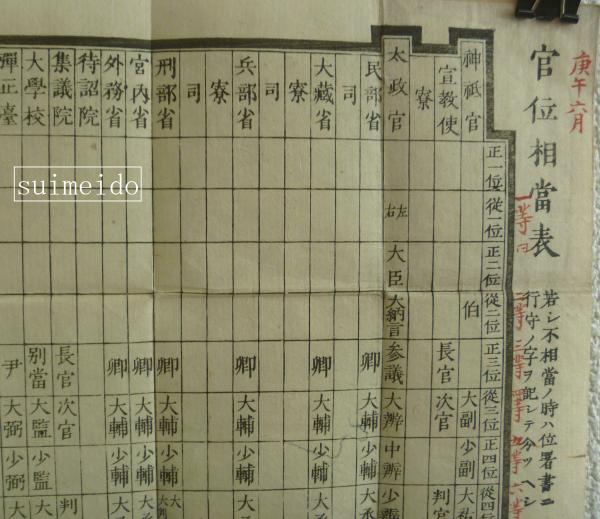 庚午六月
官位相當表
若シ不相當ノ時ハ位署書ニ
行守ノ字ヲ記シテ分ツヘシ
一等
二等 三等 四等 五等 六等
正一位 從一位 正二位 從二位 正三位 從三位 正四位 從四位
神祇官 伯 大副 少副 大祐
宣教使 長官 次官 判官
寮
太政官 左右 大臣 大納言 参議 大辨 中辨 少辨
民部省 卿 大輔 少輔 大丞
司
大藏省 卿 大輔 少輔 大丞
寮
司
兵部省 卿 大輔 少輔 大丞
寮
司
刑部省 卿 大輔 少輔
宮内省 卿 大輔 少輔 大丞
外務省 卿 大輔 少輔 大丞
待詔院
集議院 長官 次官 判
大學校 別當 大監 少監 大
彈正臺 尹 大弼 少弼 大
suimeido